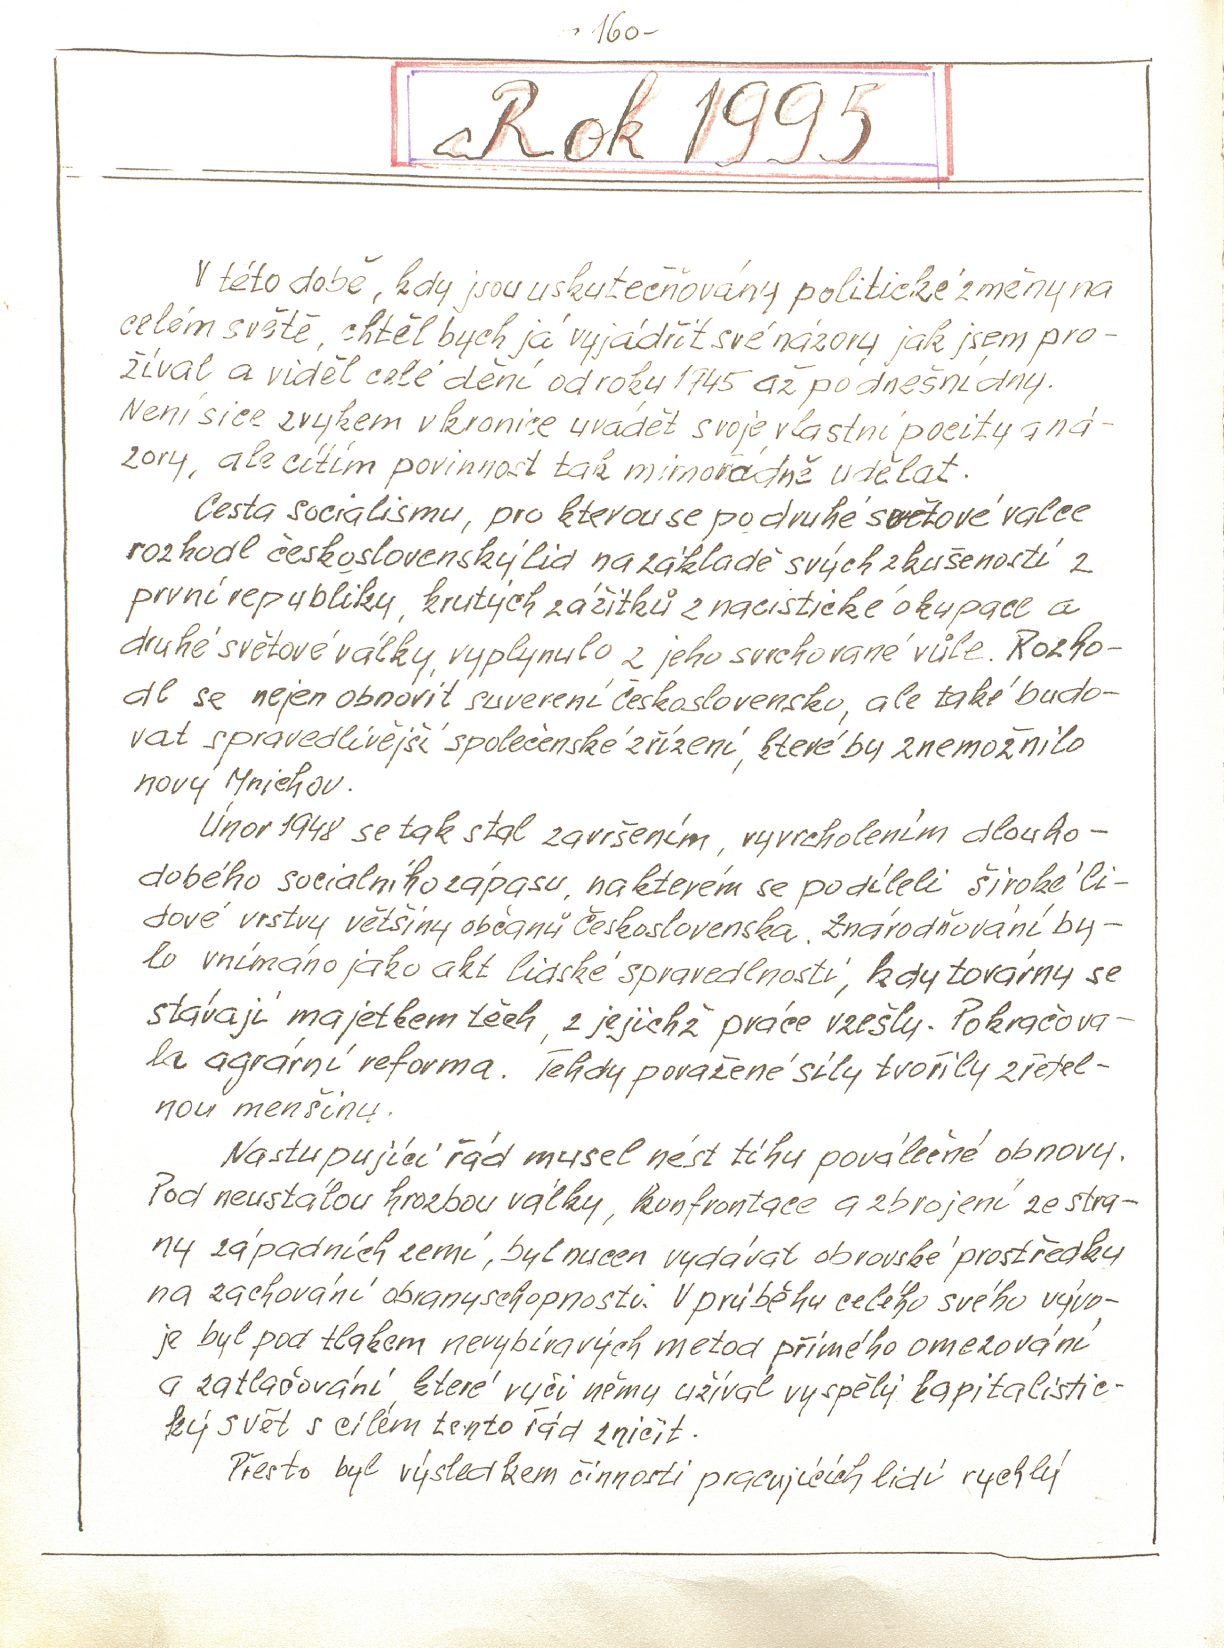 - 160-
Rok 1995
V této době, kdy jsou uskutečňovány politické změny na
celém světě, chtěl bych já vyjádřit své názory jak jsem pro-
žíval a viděl celé dění od roku 1945 až po dnešní dny.
Není sice zvykem v kronice uvádět svoje vlastní pocity a ná-
zory, ale cítím povinnost tak mimořádně udělat.
Cesta socialismu, pro kterou se po druhé světové valce
rozhodl československý lid na základě svých zkušeností z
první republiky, krutých zážitků z nacistické okupace a
druhé světové války, vyplynulo z jeho svrchované vůle. Rozho-
dl se nejen obnovit suverení Československo, ale také budo-
vat spravedlivější společenské zřízení, které by znemožnilo
nový Mnichov.
Únor 1948 se tak stal završením, vyvrcholením dlouho-
dobého socialního zápasu, na kterém se podíleli široké li-
dové vrstvy většiny občanů Československa. Znárodňování by-
lo vnímáno jako akt lidské spravedlnosti, kdy továrny se
stávají majetkem těch, z jejichž práce vzešly. Pokračova-
la agrární reforma. Tehdy poražené síly tvořily zřetel-
nou menšinu.
Nastupující řád musel nést tíhu poválečné obnovy.
Pod neustálou hrozbou války, konfrontace a zbrojení ze stra-
ny západních zemí, byl nucen vydávat obrovské prostředky
na zachování obranyschopnosti. V průběhu celého svého vývo-
je byl pod tlakem nevybíravých metod přímého omezování
a zatlačování které vyči němu užíval vyspělý kapitalistic-
ký svět s cílém tento řád zničit.
Přesto byl výsledkem činnosti pracujících lidí rychlý